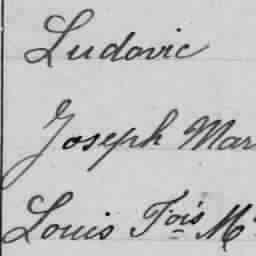 Ludovic
Joseph Mar
Louis Fois M